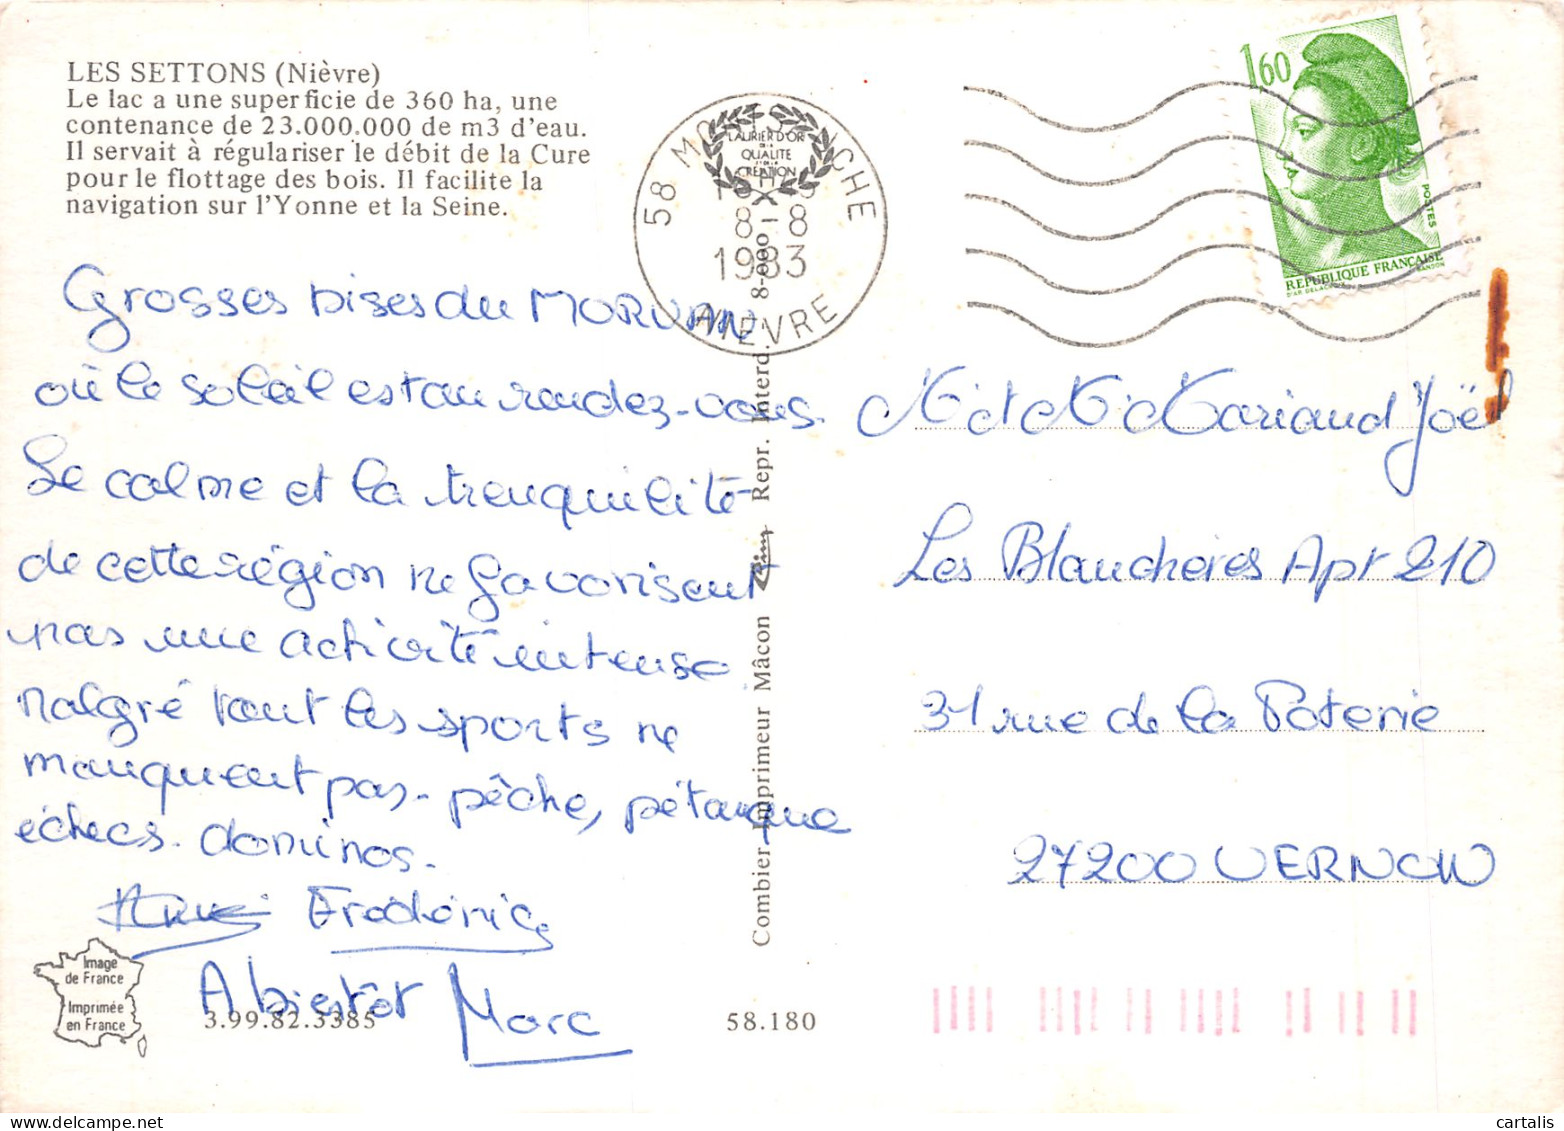 LES SETTONS (Nièvre)
Le lac a une superficie de 360 ha, une
contenance de 23.000.000 de m3 d'eau.
Il servait à régulariser le débit de la Cure
pour le flottage des bois. Il facilite la
navigation sur l'Yonne et la Seine.
Grosses bises du MORVAN
où le soleil est au rendez-vous.
Le calme et la tranquilité
de cette région ne favorisent
pas une activité intense
malgré tout les sports ne
manquent pas - pêche, pétanque
échecs - dominos -
Frédéric
A bientôt Marc
Image
de France
Imprimée
en France
3.99.82.3385
58.180
Combier Imprimeur Mâcon Cim Repr. Interd. 8-000-X
LAURIER D'OR
DE LA
QUALITE
ET DE LA
CREATION
58
CHE
8-8
1983
NIEVRE
1,60
POSTES
REPUBLIQUE FRANÇAISE
D'AP. DELACROIX GANDON
M et Mme Mariaud Joël
Les Blanchères Apt 210
31 rue de la Poterie
27200 VERNON
cartalis